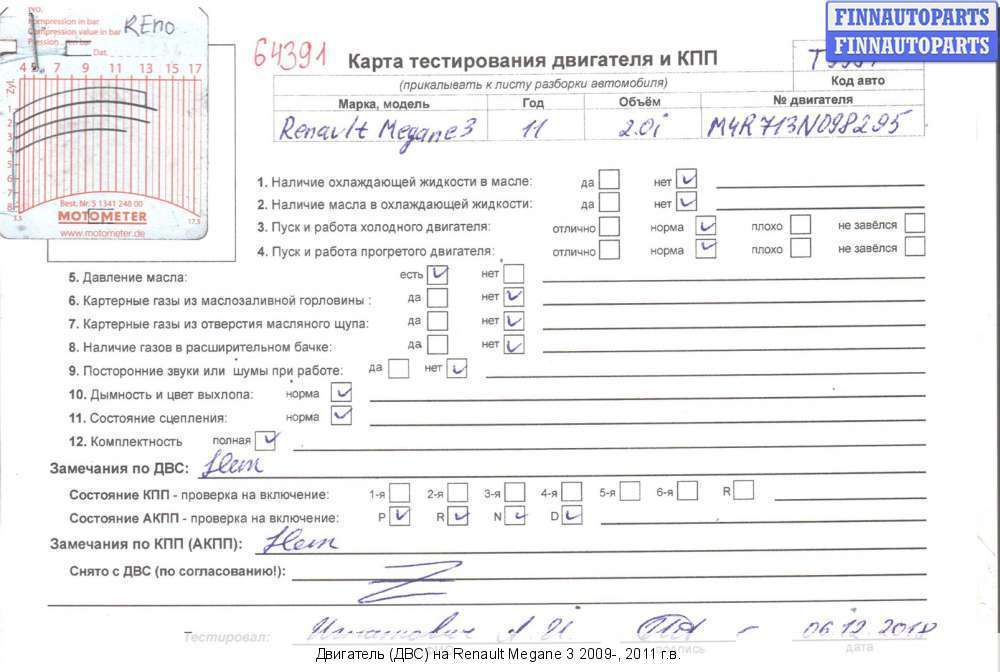 No.
Kompression in bar
Compression value in bar
Pression
Dat.
REno
FINNAUTOPARTS
FINNAUTOPARTS
64391
Карта тестирования двигателя и КПП
(прикалывать к листу разборки автомобиля)
Код авто
Марка, модель Год Объём № двигателя
Renault Megane 3 11 2.0i M4R713N098295
3 5 7 9 11 13 15 17
4
Zyl.
1
2
3
4
5
6
7
8
3,5 17,5
Best. Nr. 5 1341 248 00
MOTOMETER
www.motometer.de
1. Наличие охлаждающей жидкости в масле: да нет
2. Наличие масла в охлаждающей жидкости: да нет
3. Пуск и работа холодного двигателя: отлично норма плохо не завёлся
4. Пуск и работа прогретого двигателя: отлично норма плохо не завёлся
5. Давление масла: есть нет
6. Картерные газы из маслозаливной горловины : да нет
7. Картерные газы из отверстия масляного щупа: да нет
8. Наличие газов в расширительном бачке: да нет
9. Посторонние звуки или шумы при работе: да нет
10. Дымность и цвет выхлопа: норма
11. Состояние сцепления: норма
12. Комплектность полная
Замечания по ДВС: Нет
Состояние КПП - проверка на включение: 1-я 2-я 3-я 4-я 5-я 6-я R
Состояние АКПП - проверка на включение: P R N D
Замечания по КПП (АКПП): Нет
Снято с ДВС (по согласованию!):
Тестировал: Игнатович А.И 06.12.2018
подпись дата
Двигатель (ДВС) на Renault Megane 3 2009-, 2011 г.в.